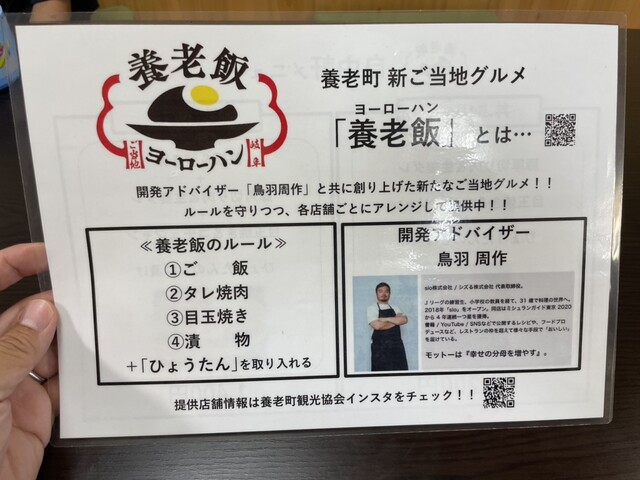 養老飯
ご当地
ヨーローハン
岐阜
養老町 新ご当地グルメ
ヨーローハン
「養老飯」とは…
開発アドバイザー「鳥羽周作」と共に創り上げた新たなご当地グルメ！！
ルールを守りつつ、各店舗ごとにアレンジして提供中！！
≪養老飯のルール≫
①ご 飯
②タレ焼肉
③目玉焼き
④漬 物
＋「ひょうたん」を取り入れる
開発アドバイザー
鳥羽 周作
sio株式会社 / シズる株式会社 代表取締役。
Jリーグの練習生、小学校の教員を経て、31歳で料理の世界へ。
2018年「sio」をオープン。同店はミシュランガイド東京 2020
から4年連続一つ星を獲得。
書籍 / YouTube / SNSなどで公開するレシピや、フードプロ
デュースなど、レストランの枠を超えて様々な手段で「おいしい」
を届けている。
モットーは『幸せの分母を増やす』。
提供店舗情報は養老町観光協会インスタをチェック！！